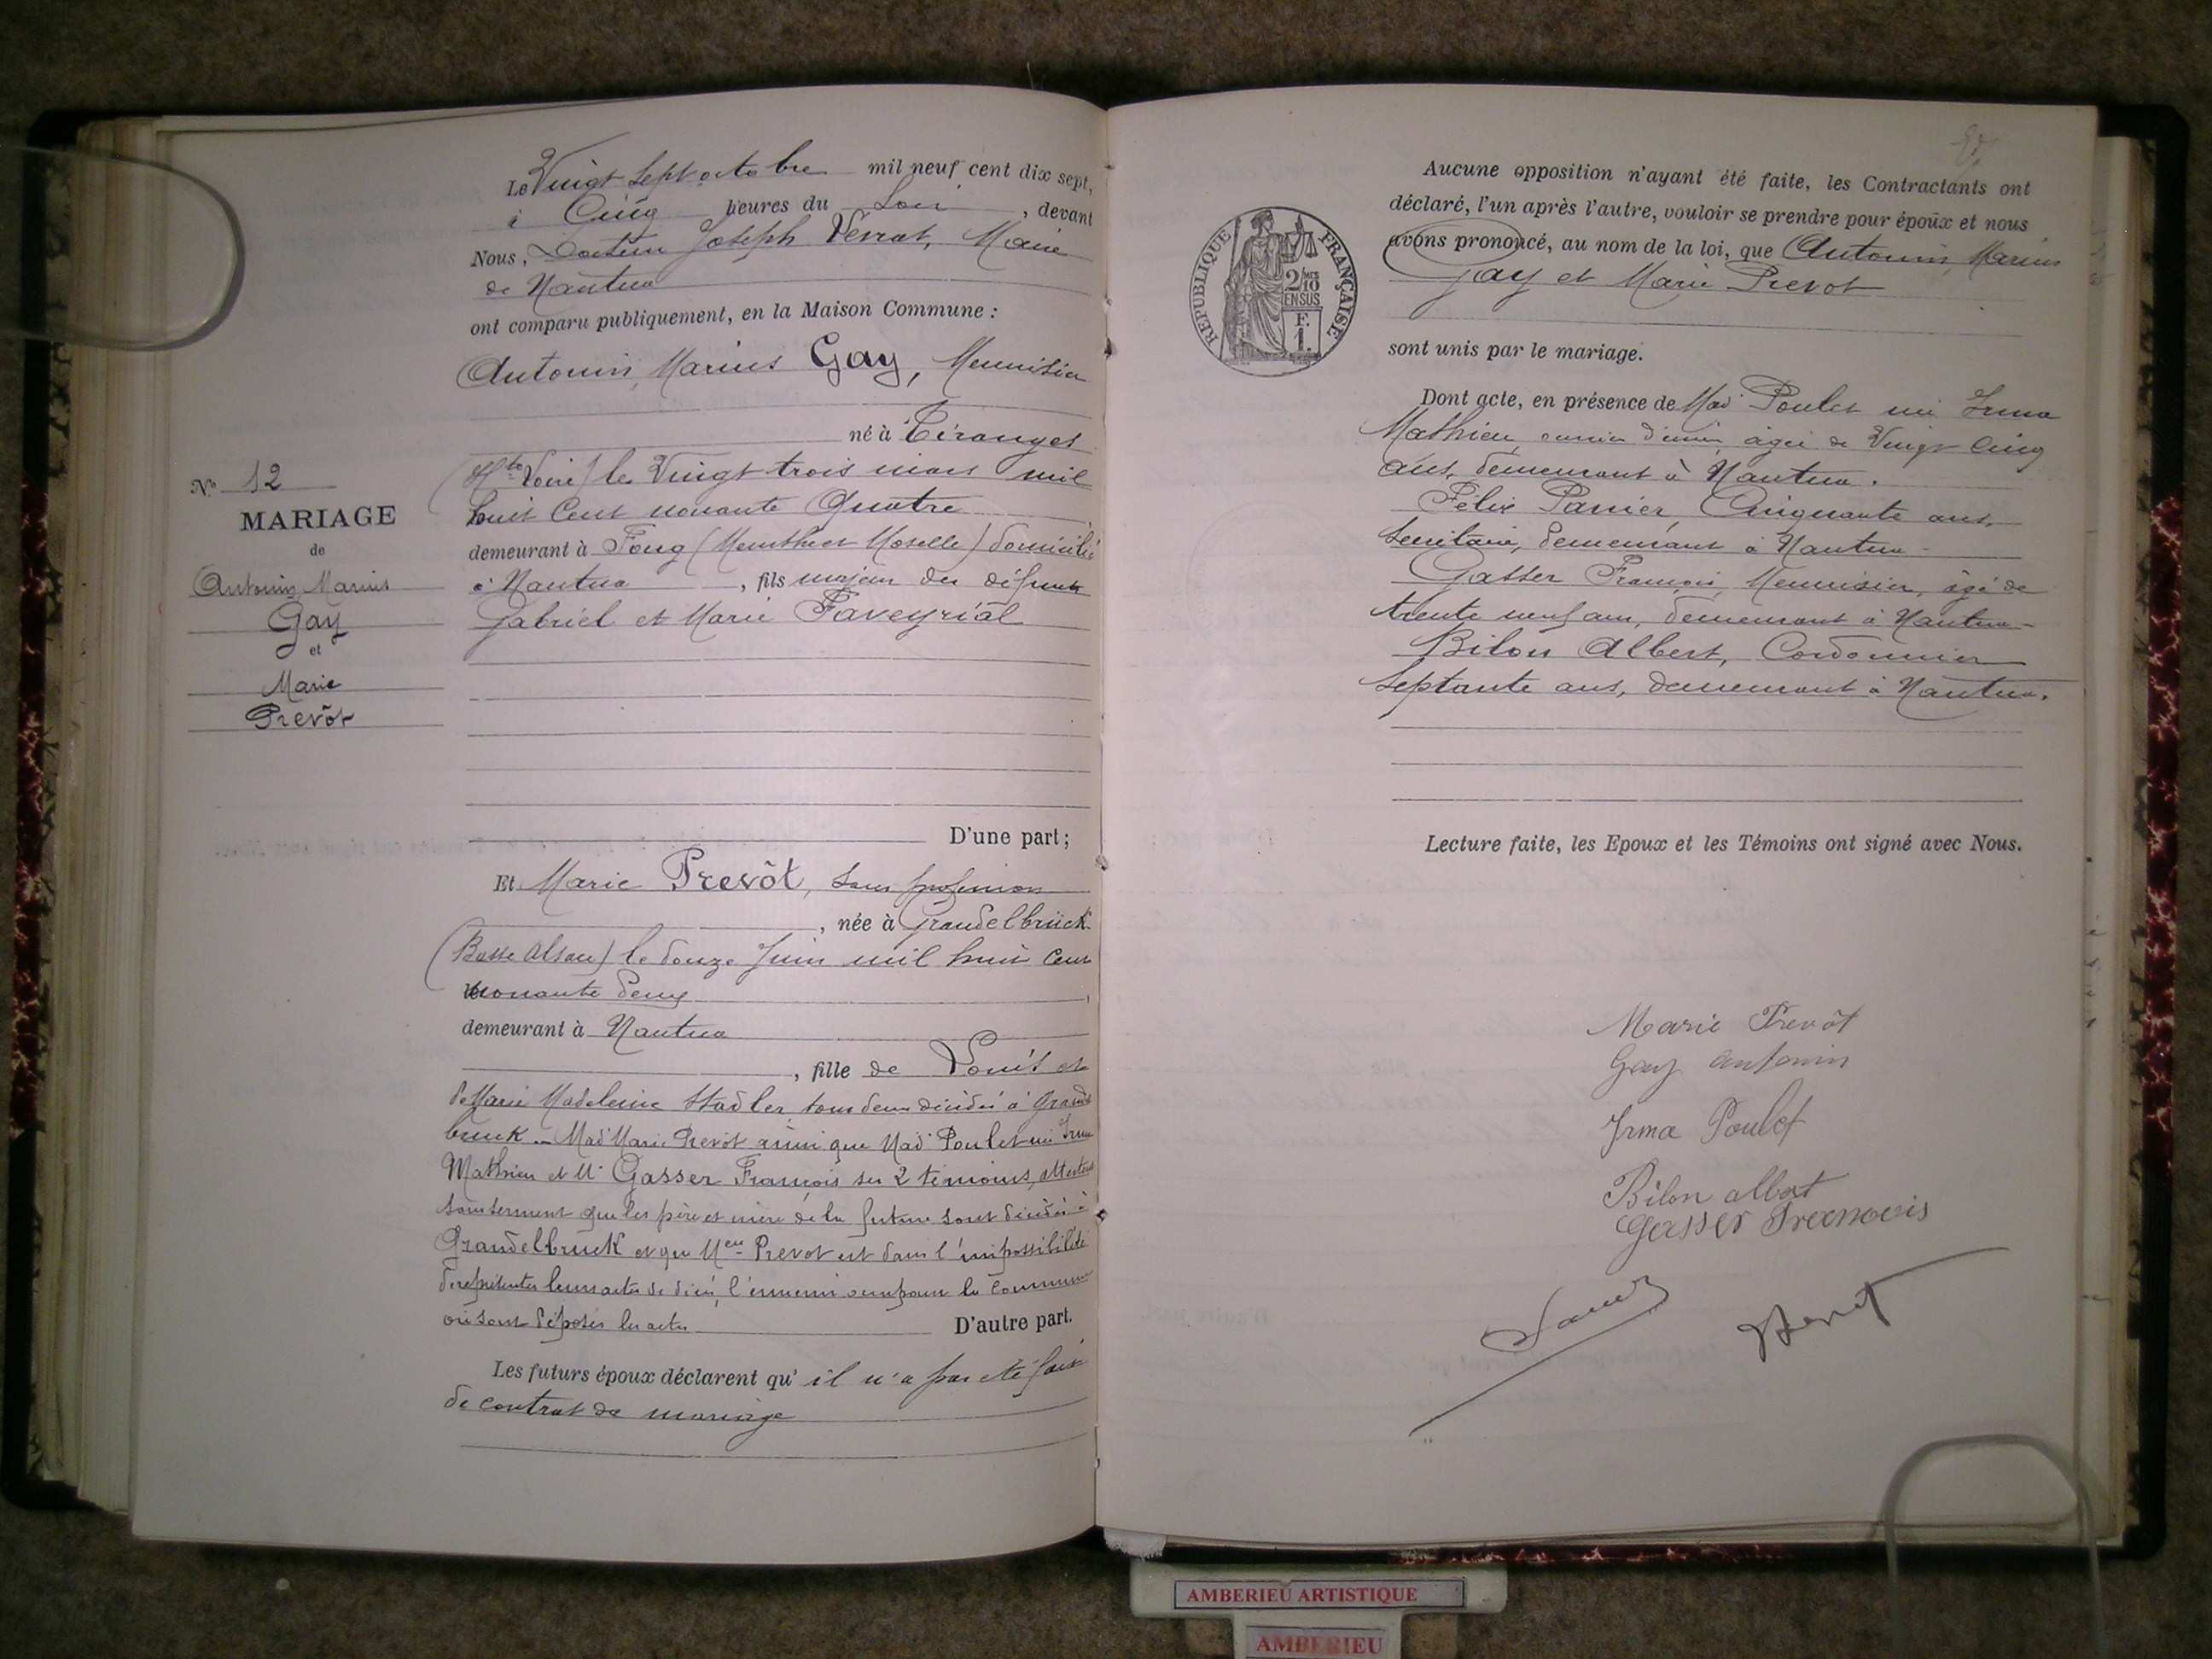 Le Vingt Sept octobre mil neuf cent dix sept,
à Cinq heures du Soir, devant
Nous, Docteur Joseph Verrat, Maire
de Nantua
ont comparu publiquement, en la Maison Commune :
Antonin, Marius Gay, Menuisier
né à Tiranges
(Hte Loire) le Vingt trois mars mil
huit Cent nonante Quatre
demeurant à Foug (Meurthe et Moselle) domicilié
à Nantua, fils majeur des défunts
Gabriel et Marie Faveyrial
D'une part ;
Et Marie Prevôt, sans profession
, née à Grandelbrück
(Basse Alsace) le douze Juin mil huit Cent
nonante deux
demeurant à Nantua
, fille de Louis et
de Marie Madeleine Stadler tous deux décédés à Grandel
bruck. Mad Marie Prevôt ainsi que Mad Poulet née Irma
Mathieu et Mr Gasser François ses 2 témoins, attestent
sous serment que les père et mère de la future sont décédés à
Grandelbruck et que Melle Prevot est dans l'impossibilité
de représenter leurs actes de décès, l'ennemi occupant la Commune
où sont déposés les actes D'autre part.
Les futurs époux déclarent qu'il n'a pas été fait
de contrat de mariage
No 12
MARIAGE
de
Antonin, Marius
Gay
et
Marie
Prevôt
REPUBLIQUE FRANÇAISE
2/10
EN SUS
F.
1.
Aucune opposition n'ayant été faite, les Contractants ont
déclaré, l'un après l'autre, vouloir se prendre pour époux et nous
avons prononcé, au nom de la loi, que Antonin, Marius
Gay et Marie Prevot
sont unis par le mariage.
Dont acte, en présence de Mad Poulet née Irma
Mathieu, âgée de Vingt Cinq
ans, demeurant à Nantua.
Félix Panier, Cinquante ans,
Secrétaire, demeurant à Nantua
Gasser François, Menuisier, âgé de
trente neuf ans, demeurant à Nantua
Bilon Albert, Cordonnier
Septante ans, demeurant à Nantua.
Lecture faite, les Epoux et les Témoins ont signé avec Nous.
Marie Prevôt
Gay antonin
Irma Poulet
Bilon albert
Gasser Francois
AMBERIEU ARTISTIQUE
AMBERIEU